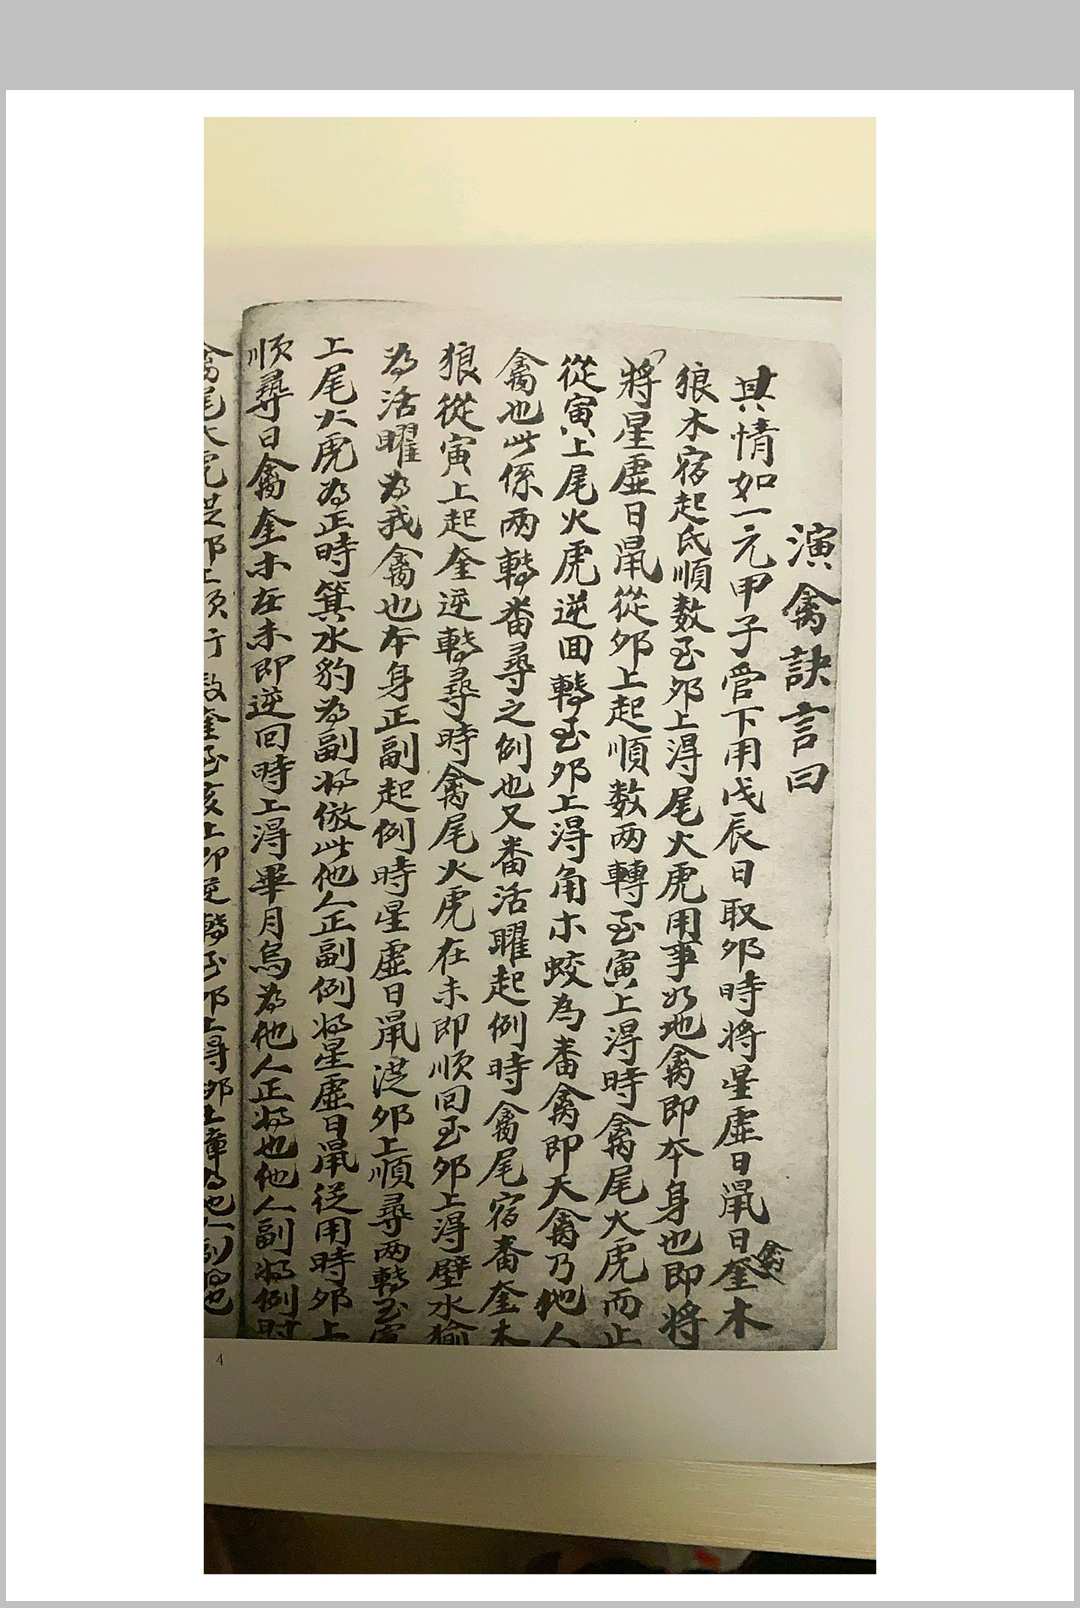 演禽訣言曰
其情如一元甲子管下用戊辰日取夘時将星虛日鼠日禽奎木
狼木宿起氐順数至夘上淂尾火虎用事如地禽即本身也即将
將星虛日鼠從夘上起順数两轉至寅上淂時禽尾火虎而止
從寅上尾火虎逆回轉至夘上淂角木蛟為畨禽即天禽乃他人
禽也此係两轉畨尋之例也又畨活曜起例時禽尾宿畨奎木
狼從寅上起奎逆轉尋時禽尾火虎在未即順回至夘上淂壁水㺄
為活曜為我禽也本身正副起例時星虛日鼠从夘上順尋两轉至寅
上尾火虎為正時箕水豹為副將倣此他人正副例將星虛日鼠从用時夘上
順尋日禽奎木在未即逆回時上淂畢月烏為他人正將也他人副將例时
禽尾火虎从夘上順行数奎至亥上即逆轉至夘上淂
4